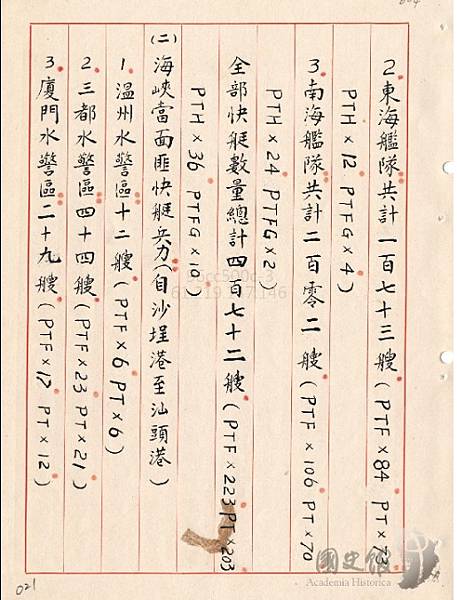 2.東海艦隊共計一百七十三艘(PTF×84 PT×73
PTH×12 PTFG×4)
3.南海艦隊共計二百零二艘(PTF×106 PT×70
PTH×24 PTFG×2)
全部快艇數量總計四百七十二艘(PTF×223 PT×203
PTH×36 PTFG×10)
(二)海峽當面匪快艇兵力(自沙埕港至汕頭港)
1.温州水警區十二艘(PTF×6 PT×6)
2.三都水警區四十四艘(PTF×23 PT×21)
3.廈門水警區二十九艘(PTF×17 PT×12)
021
國史館
Academia Historica